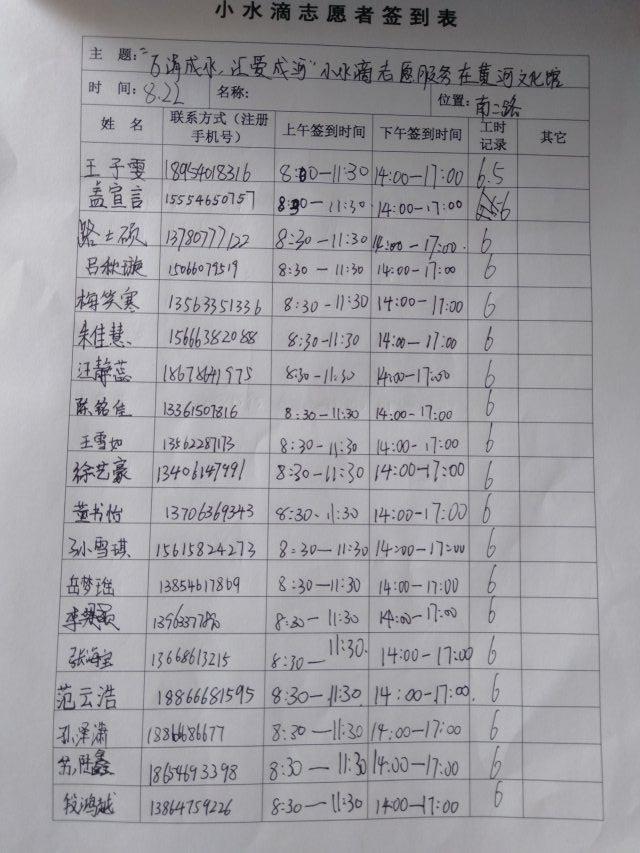 小水滴志愿者签到表
主 题:"百滴成水,汇爱成河"小水滴志愿服务在黄河文化馆
时 间:8.22 名称: 位置:南二路
姓 名 联系方式(注册手机号) 上午签到时间 下午签到时间 工时记录 其它
王子雯 18954018316 8:00-11:30 14:00-17:00 6.5
孟宣言 15554650757 8:30-11:30 14:00-17:00 6
路士硕 13780777122 8:30-11:30 14:00-17:00 6
吕秋璇 15066079519 8:30-11:30 14:00-17:00 6
梅笑寒 13563351336 8:30-11:30 14:00-17:00 6
朱佳慧 15666382088 8:30-11:30 14:00-17:00 6
汪静蕊 18678641975 8:30-11:30 14:00-17:00 6
陈铭佳 13361507816 8:30-11:30 14:00-17:00 6
王雪如 13562287173 8:30-11:30 14:00-17:00 6
徐艺豪 13406147491 8:30-11:30 14:00-17:00 6
董书怡 13706369343 8:30-11:30 14:00-17:00 6
孙雪琪 15615824273 8:30-11:30 14:00-17:00 6
岳梦瑶 13854617869 8:30-11:30 14:00-17:00 6
李 8:30-11:30 14:00-17:00 6
张海宝 13668613215 8:30-11:30 14:00-17:00 6
范云浩 18866681595 8:30-11:30 14:00-17:00 6
孙泽潇 8:30-11:30 14:00-17:00 6
18654693398 8:30-11:30 14:00-17:00 6
鸿越 13864759226 8:30-11:30 14:00-17:00 6